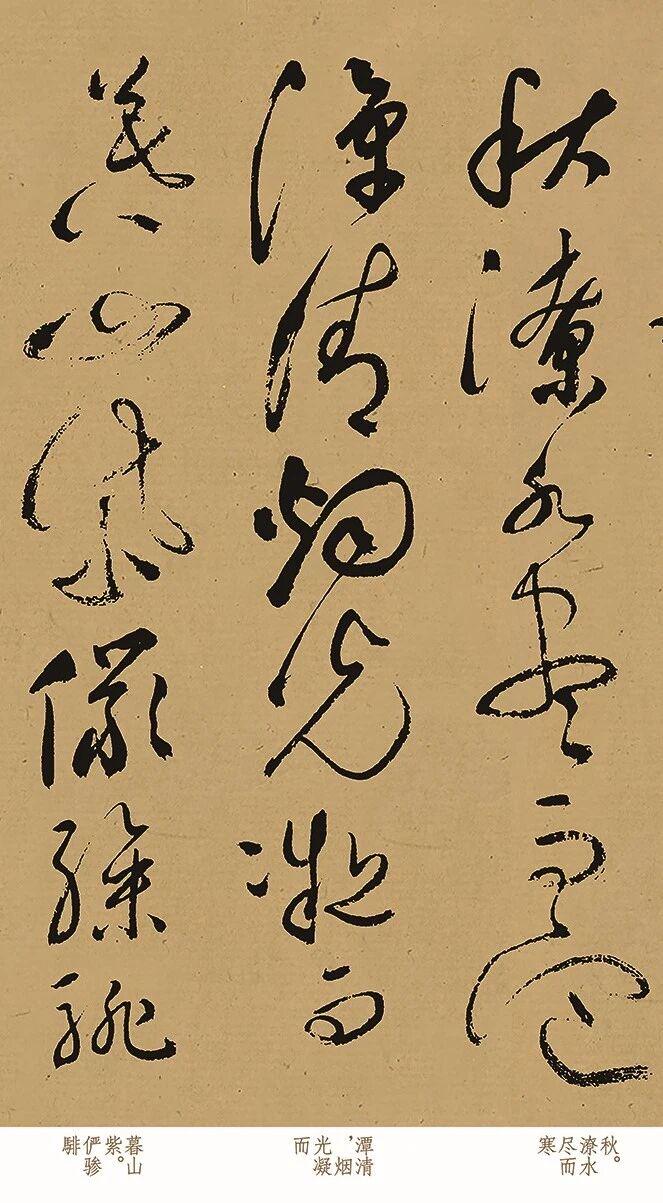 秋潦水盡而寒
潭清烟光凝而
暮山紫儼驂騑
秋。
潦水
尽而
寒
潭清
，烟
光凝
而
暮山
紫。
俨骖
騑